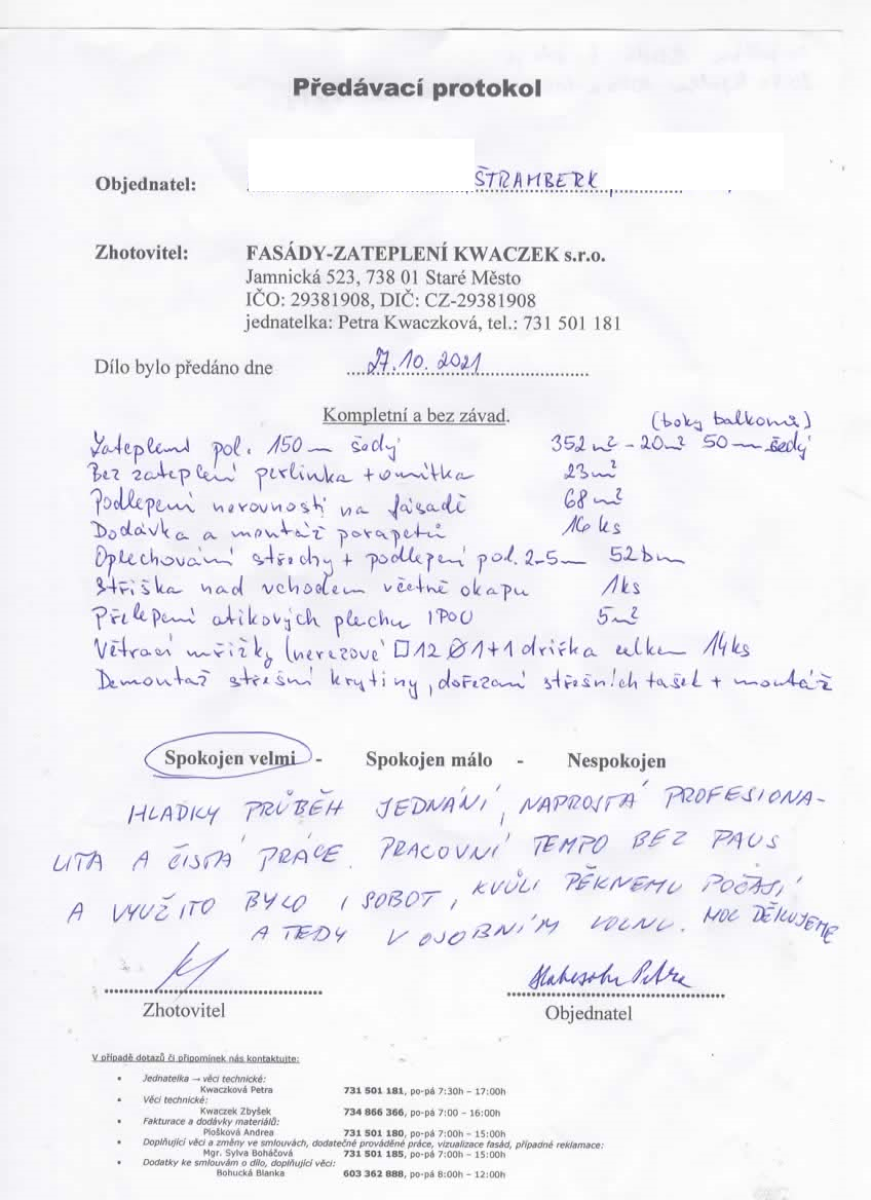 Předávací protokol
Objednatel: ŠTRAMBERK
Zhotovitel: FASÁDY-ZATEPLENÍ KWACZEK s.r.o.
Jamnická 523, 738 01 Staré Město
IČO: 29381908, DIČ: CZ-29381908
jednatelka: Petra Kwaczková, tel.: 731 501 181
Dílo bylo předáno dne 27.10.2021
Kompletní a bez závad.
(boky balkonů)
Zateplení pol. 150mm šedý 352m² - 20m² 50mm šedý
Bez zateplení perlinka + omítka 23m²
Podlepení nerovností na fásadě 68m²
Dodávka a montáž parapetů 16ks
Oplechování střechy + podlepení pol. 2-5cm 52bm
Stříška nad vchodem včetně okapu 1ks
Přelepení atikových plechu 5m²
Větrací mřížky (nerezové □12 Ø1+1 celkem 14ks
Demontáž střešní krytiny, dořezaní střešních tašek + montáž
Spokojen velmi - Spokojen málo - Nespokojen
HLADKY PRŮBĚH JEDNÁNÍ, NAPROSTÁ PROFESIONA-
LITA A ČISTÁ PRÁCE. PRACOVNÍ TEMPO BEZ PAUS
A VYUŽITO BYLO I SOBOT, KVŮLI PĚKNEMU POČASÍ
A TEDY V OSOBNÍM VOLNU. MOC DĚKUJEME
Petra
Zhotovitel Objednatel
V případě dotazů či připomínek nás kontaktujte:
• Jednatelka → věci technické:
Kwaczková Petra 731 501 181, po-pá 7:30h – 17:00h
• Věci technické:
Kwaczek Zbyšek 734 866 366, po-pá 7:00 – 16:00h
• Fakturace a dodávky materiálů:
Plošková Andrea 731 501 180, po-pá 7:00h – 15:00h
• Doplňující věci a změny ve smlouvách, dodatečné prováděné práce, vizualizace fasád, případné reklamace:
Mgr. Sylva Boháčová 731 501 185, po-pá 7:00h – 15:00h
• Dodatky ke smlouvám o dílo, doplňující věci:
Bohucká Blanka 603 362 888, po-pá 8:00h – 12:00h